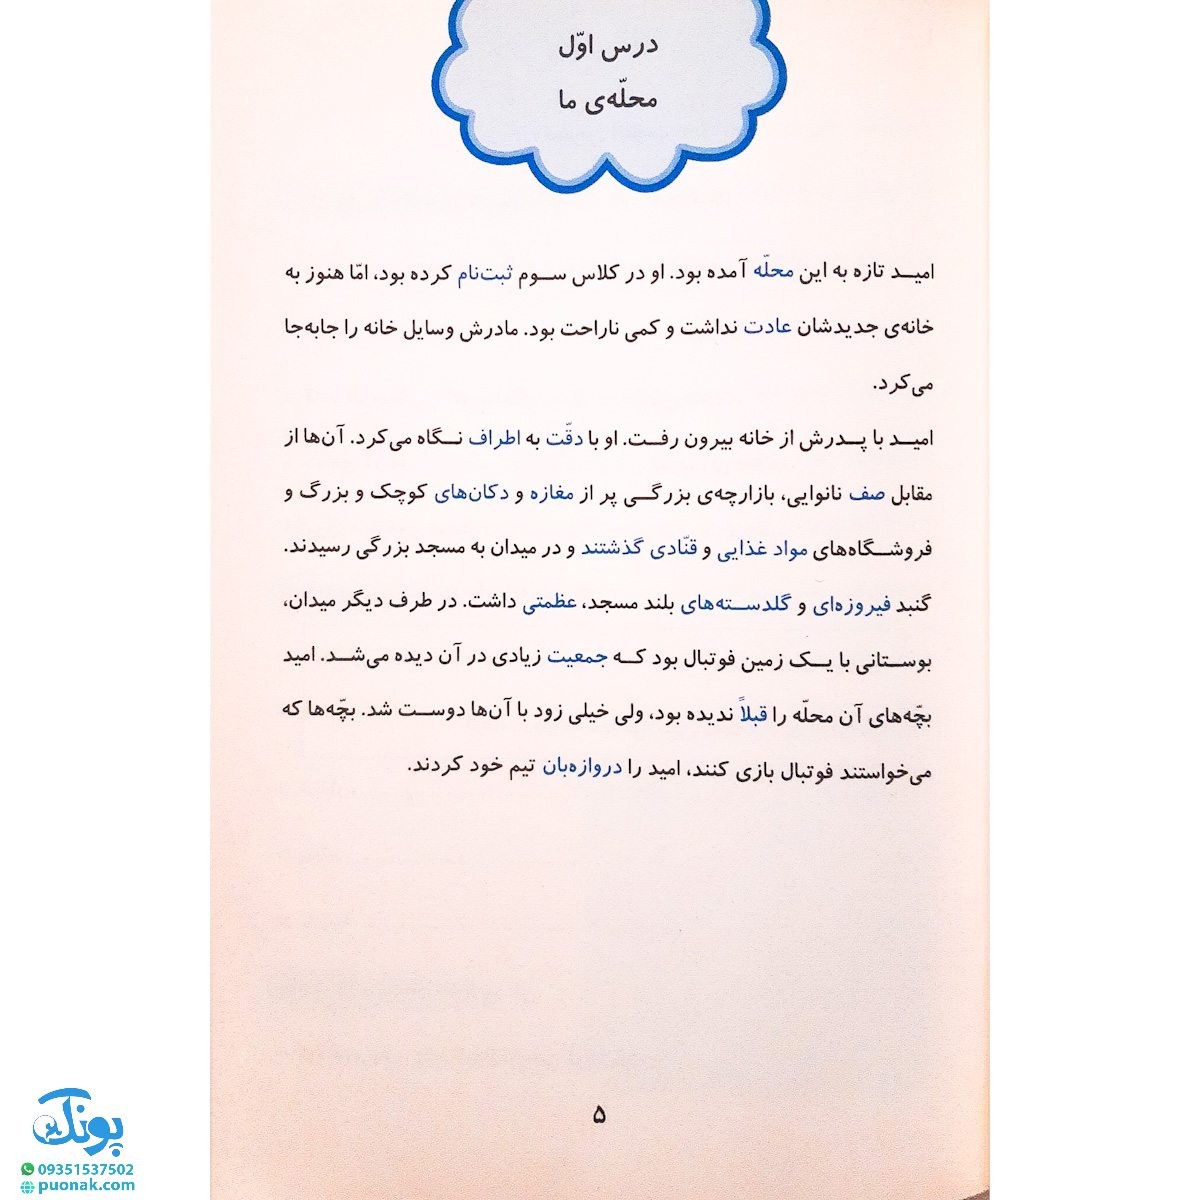 درس اوّل
محلّه‌ی ما
امیـد تازه به این محلّه آمده بود. او در کلاس سـوم ثبت‌نام کرده بود، امّا هنوز به
خانه‌ی جدیدشان عادت نداشت و کمی ناراحت بود. مادرش وسایل خانه را جابه‌جا
می‌کرد.
امیـد با پـدرش از خانه بیرون رفـت. او با دقّت به اطراف نـگاه می‌کرد. آن‌ها از
مقابل صف نانوایی، بازارچه‌ی بزرگـی پر از مغازه و دکان‌های کوچک و بزرگ و
فروشـگاه‌های مواد غذایی و قنّادی گذشتند و در میدان به مسجد بزرگی رسیدند.
گنبد فیروزه‌ای و گلدسـته‌های بلند مسجد، عظمتی داشت. در طرف دیگر میدان،
بوسـتانی با یـک زمین فوتبال بود کـه جمعیت زیادی در آن دیده می‌شـد. امید
بچّه‌های آن محلّه را قبلاً ندیده بود، ولی خیلی زود با آن‌ها دوسـت شد. بچّه‌ها که
می‌خواستند فوتبال بازی کنند، امید را دروازه‌بان تیم خود کردند.
۵
پونک
09351537502
puonak.com